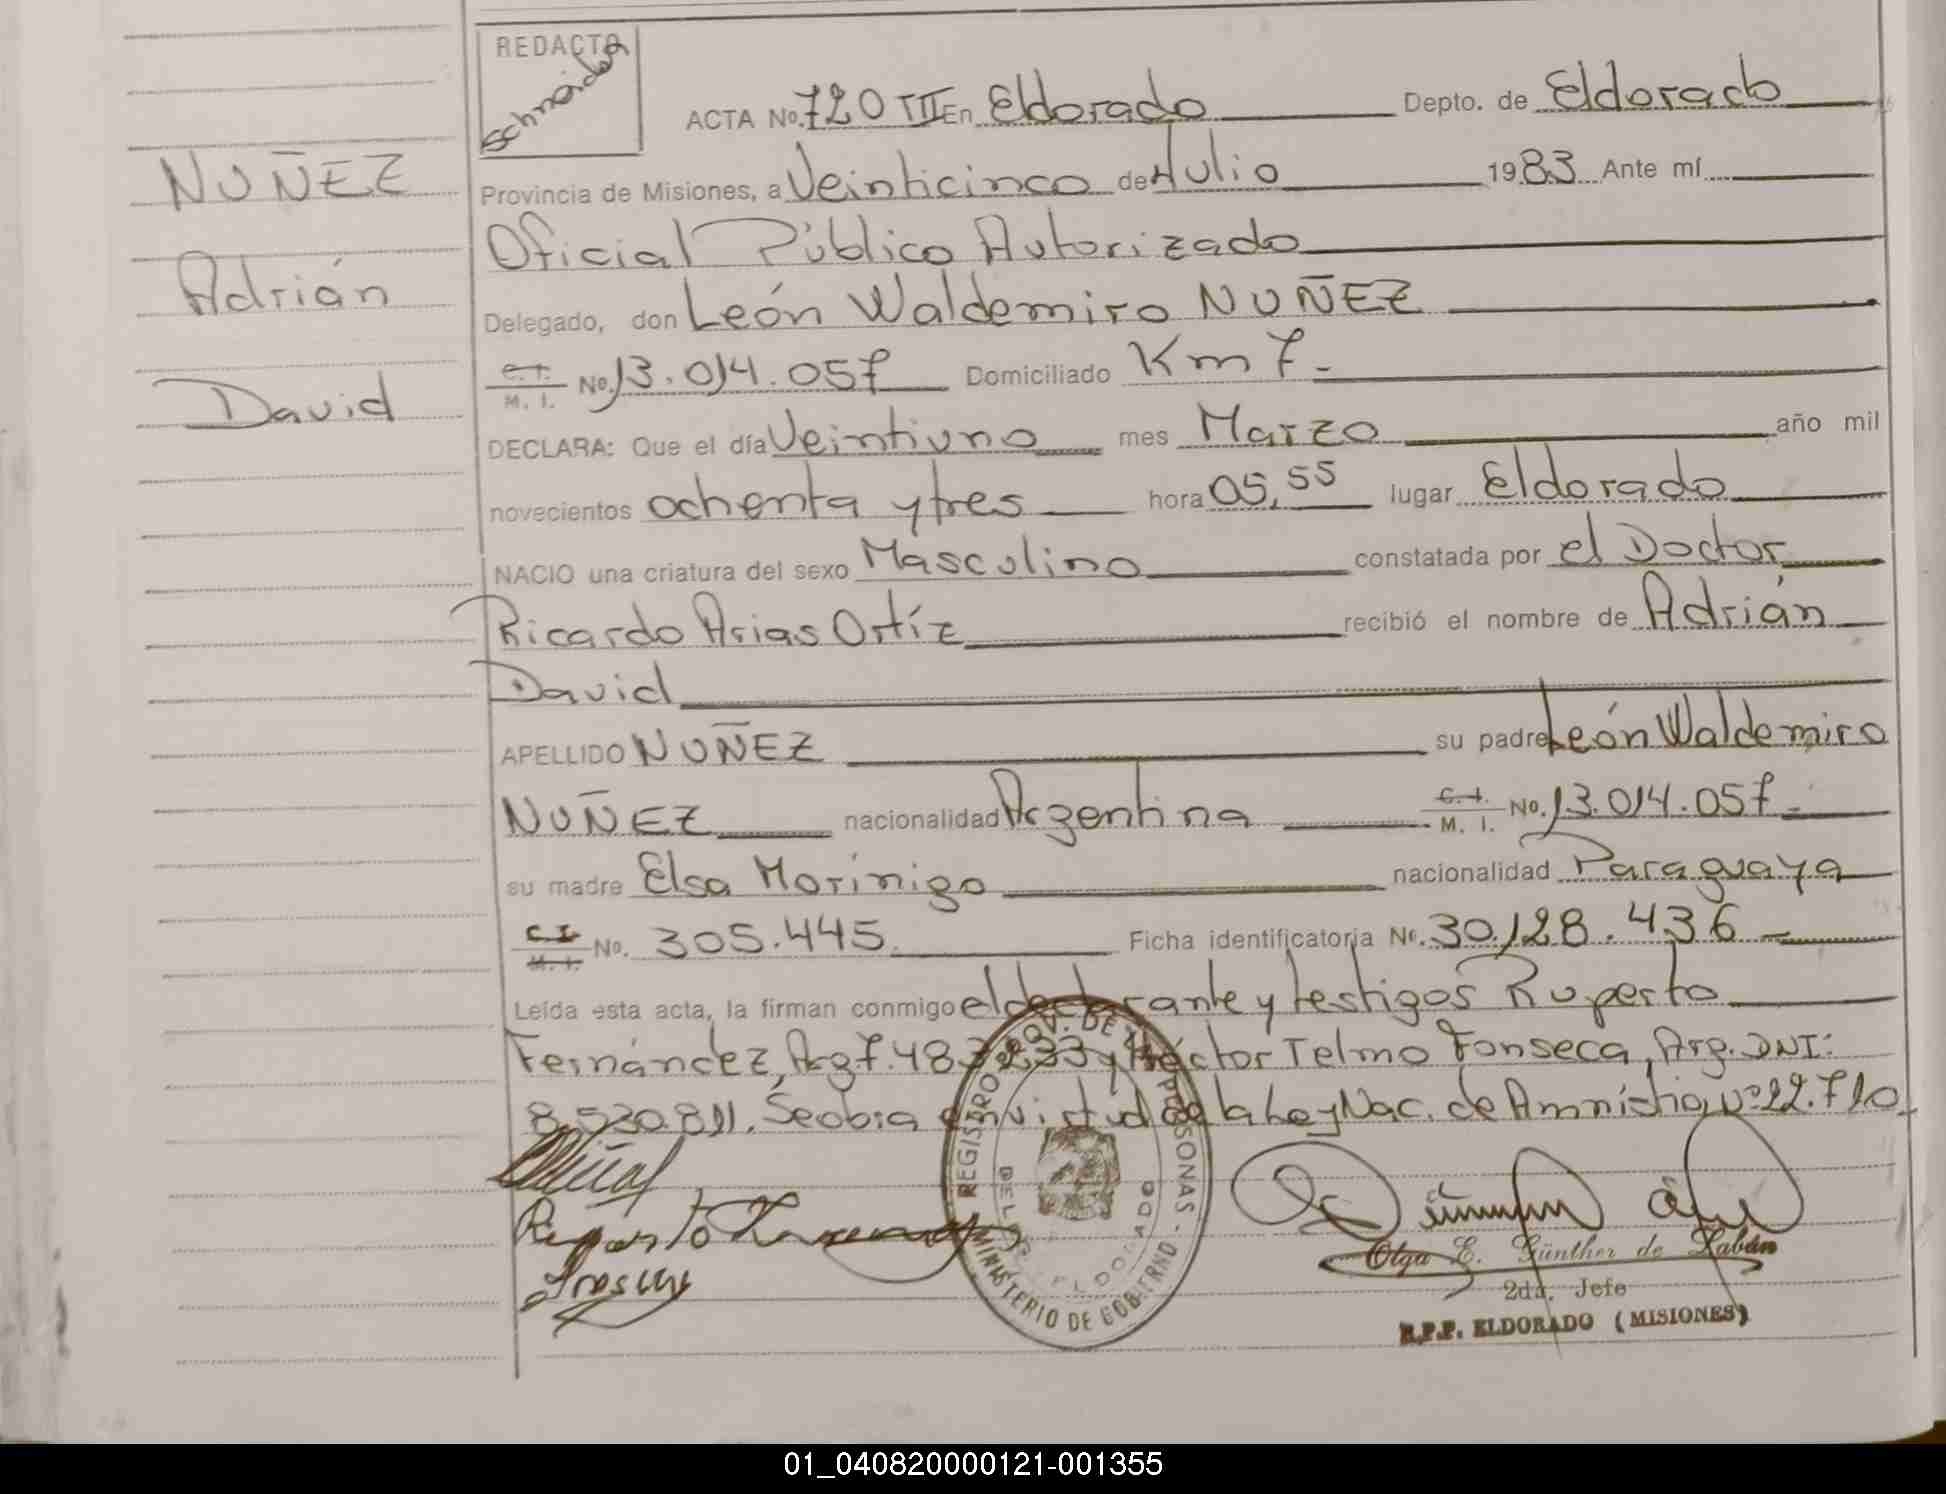 REDACTO
Schneider
NUÑEZ
Adrián
David
ACTA No. 720 TIII En Eldorado Depto. de Eldorado
Provincia de Misiones, a Veinticinco de Julio 1983 Ante mí
Oficial Público Autorizado
Delegado, don León Waldemiro NUÑEZ
C.I. M. I. No. 13.014.057 Domiciliado Km 7.-
DECLARA: Que el día Veintiuno mes Marzo año mil
novecientos ochenta y tres hora 05,55 lugar Eldorado
NACIO una criatura del sexo Masculino constatada por el Doctor
Ricardo Arias Ortíz recibió el nombre de Adrián
David
APELLIDO NUÑEZ su padre León Waldemiro
NUÑEZ nacionalidad Argentina C.I. M. I. No. 13.014.057.-
su madre Elsa Morínigo nacionalidad Paraguaya
C.I. M. I. No. 305.445. Ficha identificatoria No. 30.128.436
Leída esta acta, la firman conmigo el declarante y testigos Ruperto
Fernández, Arg. 7.483.233 y Héctor Telmo Fonseca, Arg. DNI:
8.530.811. Se obra en virtud de la Ley Nac. de Amnistia, nº 22.710
REGISTRO PROV. DE LAS PERSONAS - MINISTERIO DE GOBIERNO
ELDORADO
Olga E. Günther de Labán
2da. Jefe
R.P.P. ELDORADO (MISIONES)
01_040820000121-001355